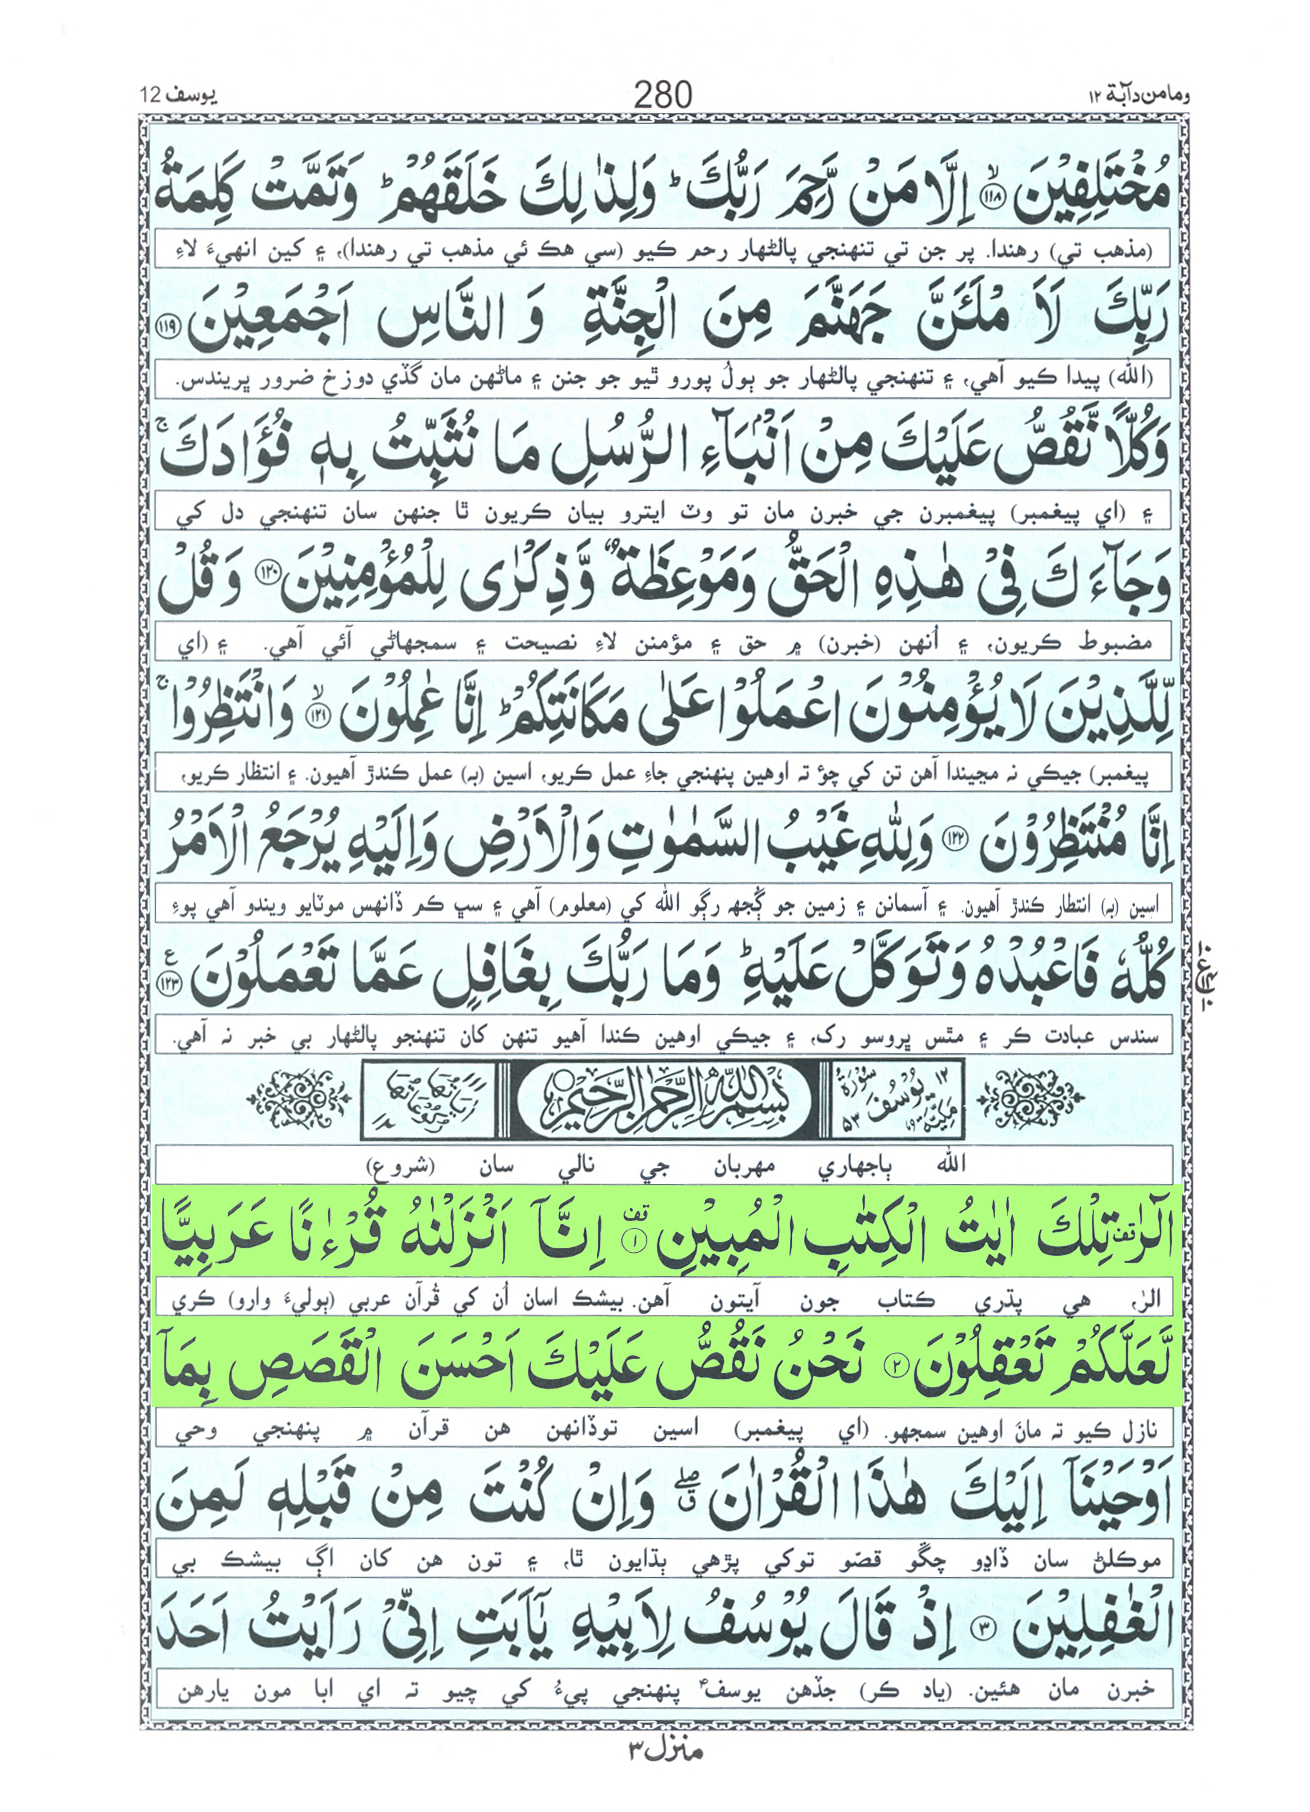 وما من دآبة ١٢
280
يوسف 12
مُخْتَلِفِيْنَ ۙ‏﴿١١٨﴾ اِلَّا مَنْ رَّحِمَ رَبُّكَ ؕ وَلِذٰلِكَ خَلَقَهُمْ ؕ وَتَمَّتْ كَلِمَةُ
(مذهب تي) رهندا. پر جن تي تنهنجي پالڻهار رحم ڪيو (سي هڪ ئي مذهب تي رهندا)، ۽ کين انهيءَ لاءِ
رَبِّكَ لَاَ مْلَـَٔنَّ جَهَنَّمَ مِنَ الْجِنَّةِ وَ النَّاسِ اَجْمَعِيْنَ ﴿١١٩﴾
(الله) پيدا ڪيو آهي، ۽ تنهنجي پالڻهار جو ٻولُ پورو ٿيو جو جنن ۽ ماڻهن مان گڏي دوزخ ضرور ڀريندس.
وَكُلًّا نَّقُصُّ عَلَيْكَ مِنْ اَنْۢبَآءِ الرُّسُلِ مَا نُثَبِّتُ بِهٖ فُؤَادَكَ ۚ
۽ (اي پيغمبر) پيغمبرن جي خبرن مان تو وٽ ايترو بيان ڪريون ٿا جنهن سان تنهنجي دل کي
وَجَآءَ كَ فِيْ هٰذِهِ الْحَقُّ وَمَوْعِظَةٌ وَّذِكْرٰى لِلْمُؤْمِنِيْنَ ﴿١٢٠﴾ وَقُلْ
مضبوط ڪريون، ۽ اُنهن (خبرن) ۾ حق ۽ مؤمنن لاءِ نصيحت ۽ سمجهاڻي آئي آهي. ۽ (اي
لِّلَّذِيْنَ لَا يُؤْمِنُوْنَ اعْمَلُوْا عَلٰى مَكَانَتِكُمْ ؕ اِنَّا عٰمِلُوْنَ ۙ﴿١٢١﴾ وَانْتَظِرُوْا ۚ
پيغمبر) جيڪي نہ مڃيندا آهن تن کي چؤ تہ اوهين پنهنجي جاءِ عمل ڪريو، اسين (بہ) عمل ڪندڙ آهيون. ۽ انتظار ڪريو،
اِنَّا مُنْتَظِرُوْنَ ﴿١٢٢﴾ وَلِلّٰهِ غَيْبُ السَّمٰوٰتِ وَالْاَرْضِ وَاِلَيْهِ يُرْجَعُ الْاَمْرُ
اسين (بہ) انتظار ڪندڙ آهيون. ۽ آسمانن ۽ زمين جو ڳُجهہ رڳو الله کي (معلوم) آهي ۽ سڀ ڪم ڏانهس موٽايو ويندو آهي پوءِ
كُلُّهٗ فَاعْبُدْهُ وَتَوَكَّلْ عَلَيْهِ ؕ وَمَا رَبُّكَ بِغَافِلٍ عَمَّا تَعْمَلُوْنَ ﴿١٢٣﴾ ع
سندس عبادت ڪر ۽ مٿس ڀروسو رک، ۽ جيڪي اوهين ڪندا آهيو تنهن کان تنهنجو پالڻهار بي خبر نہ آهي.
١٢ سُوْرَةُ يُوْسُفَ مَكِّيَّةٌ ٥٣
بِسْمِ اللهِ الرَّحْمٰنِ الرَّحِيْمِ
الله ٻاجهاري مهربان جي نالي سان (شروع)
الٓرٰ قف تِلْكَ اٰيٰتُ الْكِتٰبِ الْمُبِيْنِ قف﴿١﴾ اِنَّآ اَنْزَلْنٰهُ قُرْءٰنًا عَرَبِيًّا
الرٰ، هي پڌري ڪتاب جون آيتون آهن. بيشڪ اسان اُن کي قُرآن عربي (ٻوليءَ وارو) ڪري
لَّعَلَّكُمْ تَعْقِلُوْنَ ﴿٢﴾ نَحْنُ نَقُصُّ عَلَيْكَ اَحْسَنَ الْقَصَصِ بِمَآ
نازل ڪيو تہ مانَ اوهين سمجهو. (اي پيغمبر) اسين توڏانهن هن قرآن ۾ پنهنجي وحي
اَوْحَيْنَآ اِلَيْكَ هٰذَا الْقُرْاٰنَ ۖ ق وَاِنْ كُنْتَ مِنْ قَبْلِهٖ لَمِنَ
موڪلڻ سان ڏاڍو چڱو قصّو توکي پڙهي ٻڌايون ٿا، ۽ تون هن کان اڳ بيشڪ بي
الْغٰفِلِيْنَ ﴿٣﴾ اِذْ قَالَ يُوْسُفُ لِاَبِيْهِ يٰٓاَبَتِ اِنِّيْ رَاَيْتُ اَحَدَ
خبرن مان هئين. (ياد ڪر) جڏهن يوسف پنهنجي پيءُ کي چيو تہ اي ابا مون يارهن
منزل ٣